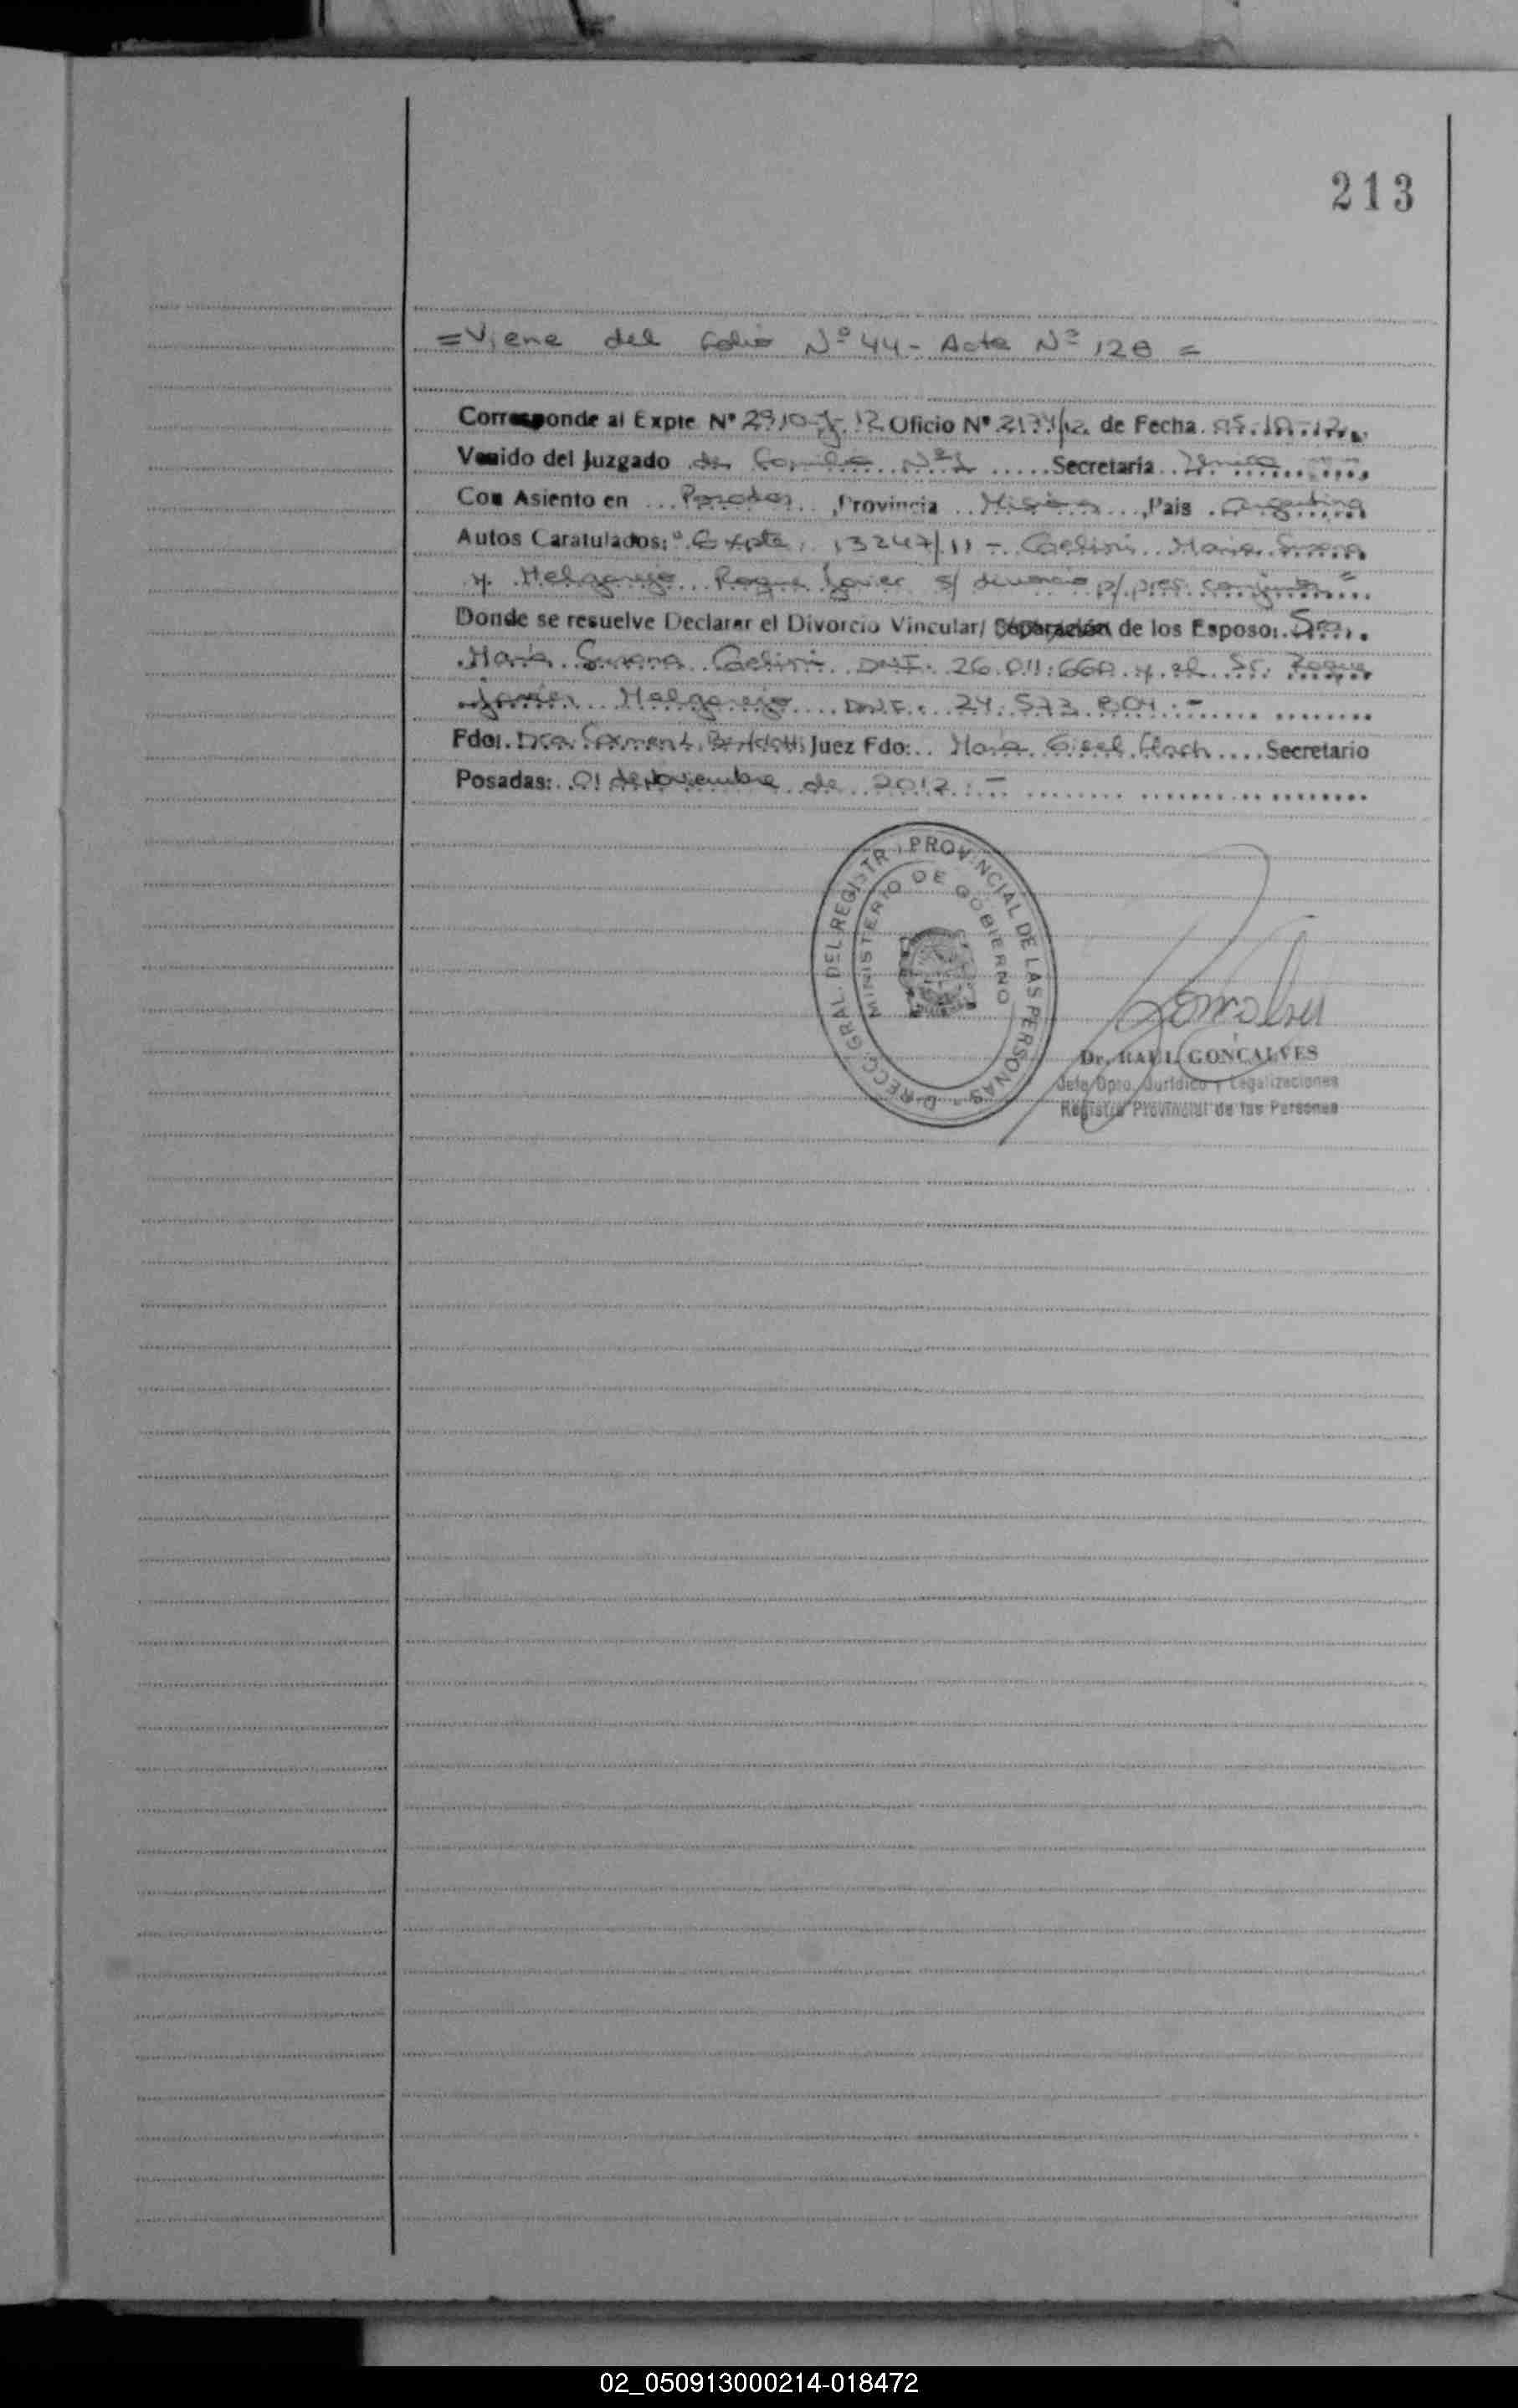 213
=Viene del Folio Nº 44- Acta Nº 128 =
Corresponde al Expte Nº 2910-J-12 Oficio Nº 2174/12 de Fecha 05.10.12
Venido del Juzgado de Familia Nº 1 Secretaria
Con Asiento en Posadas, Provincia Misiones, Pais Argentina
Autos Caratulados: "Expte. 13247/11 - Maria Susana
y Melgarejo Roque Javier s/ divorcio p/ pres. conjunta"
Donde se resuelve Declarar el Divorcio Vincular/ Separación de los Esposo: Sra.
Maria Susana DNI. 26.011.660 y el Sr. Roque
Javier Melgarejo DNI. 24.573.804.-
Fdo: Dra. Juez Fdo: Maria Secretario
Posadas: 01 de Noviembre de 2012.-
DIRECC. GRAL. DEL REGISTR PROVINCIAL DE LAS PERSONAS -
MINISTERIO DE GOBIERNO
Dr. RAUL GONCALVES
Jefe Dpto. Jurídico y Legalizaciones
Registro Provincial de las Personas
02_050913000214-018472